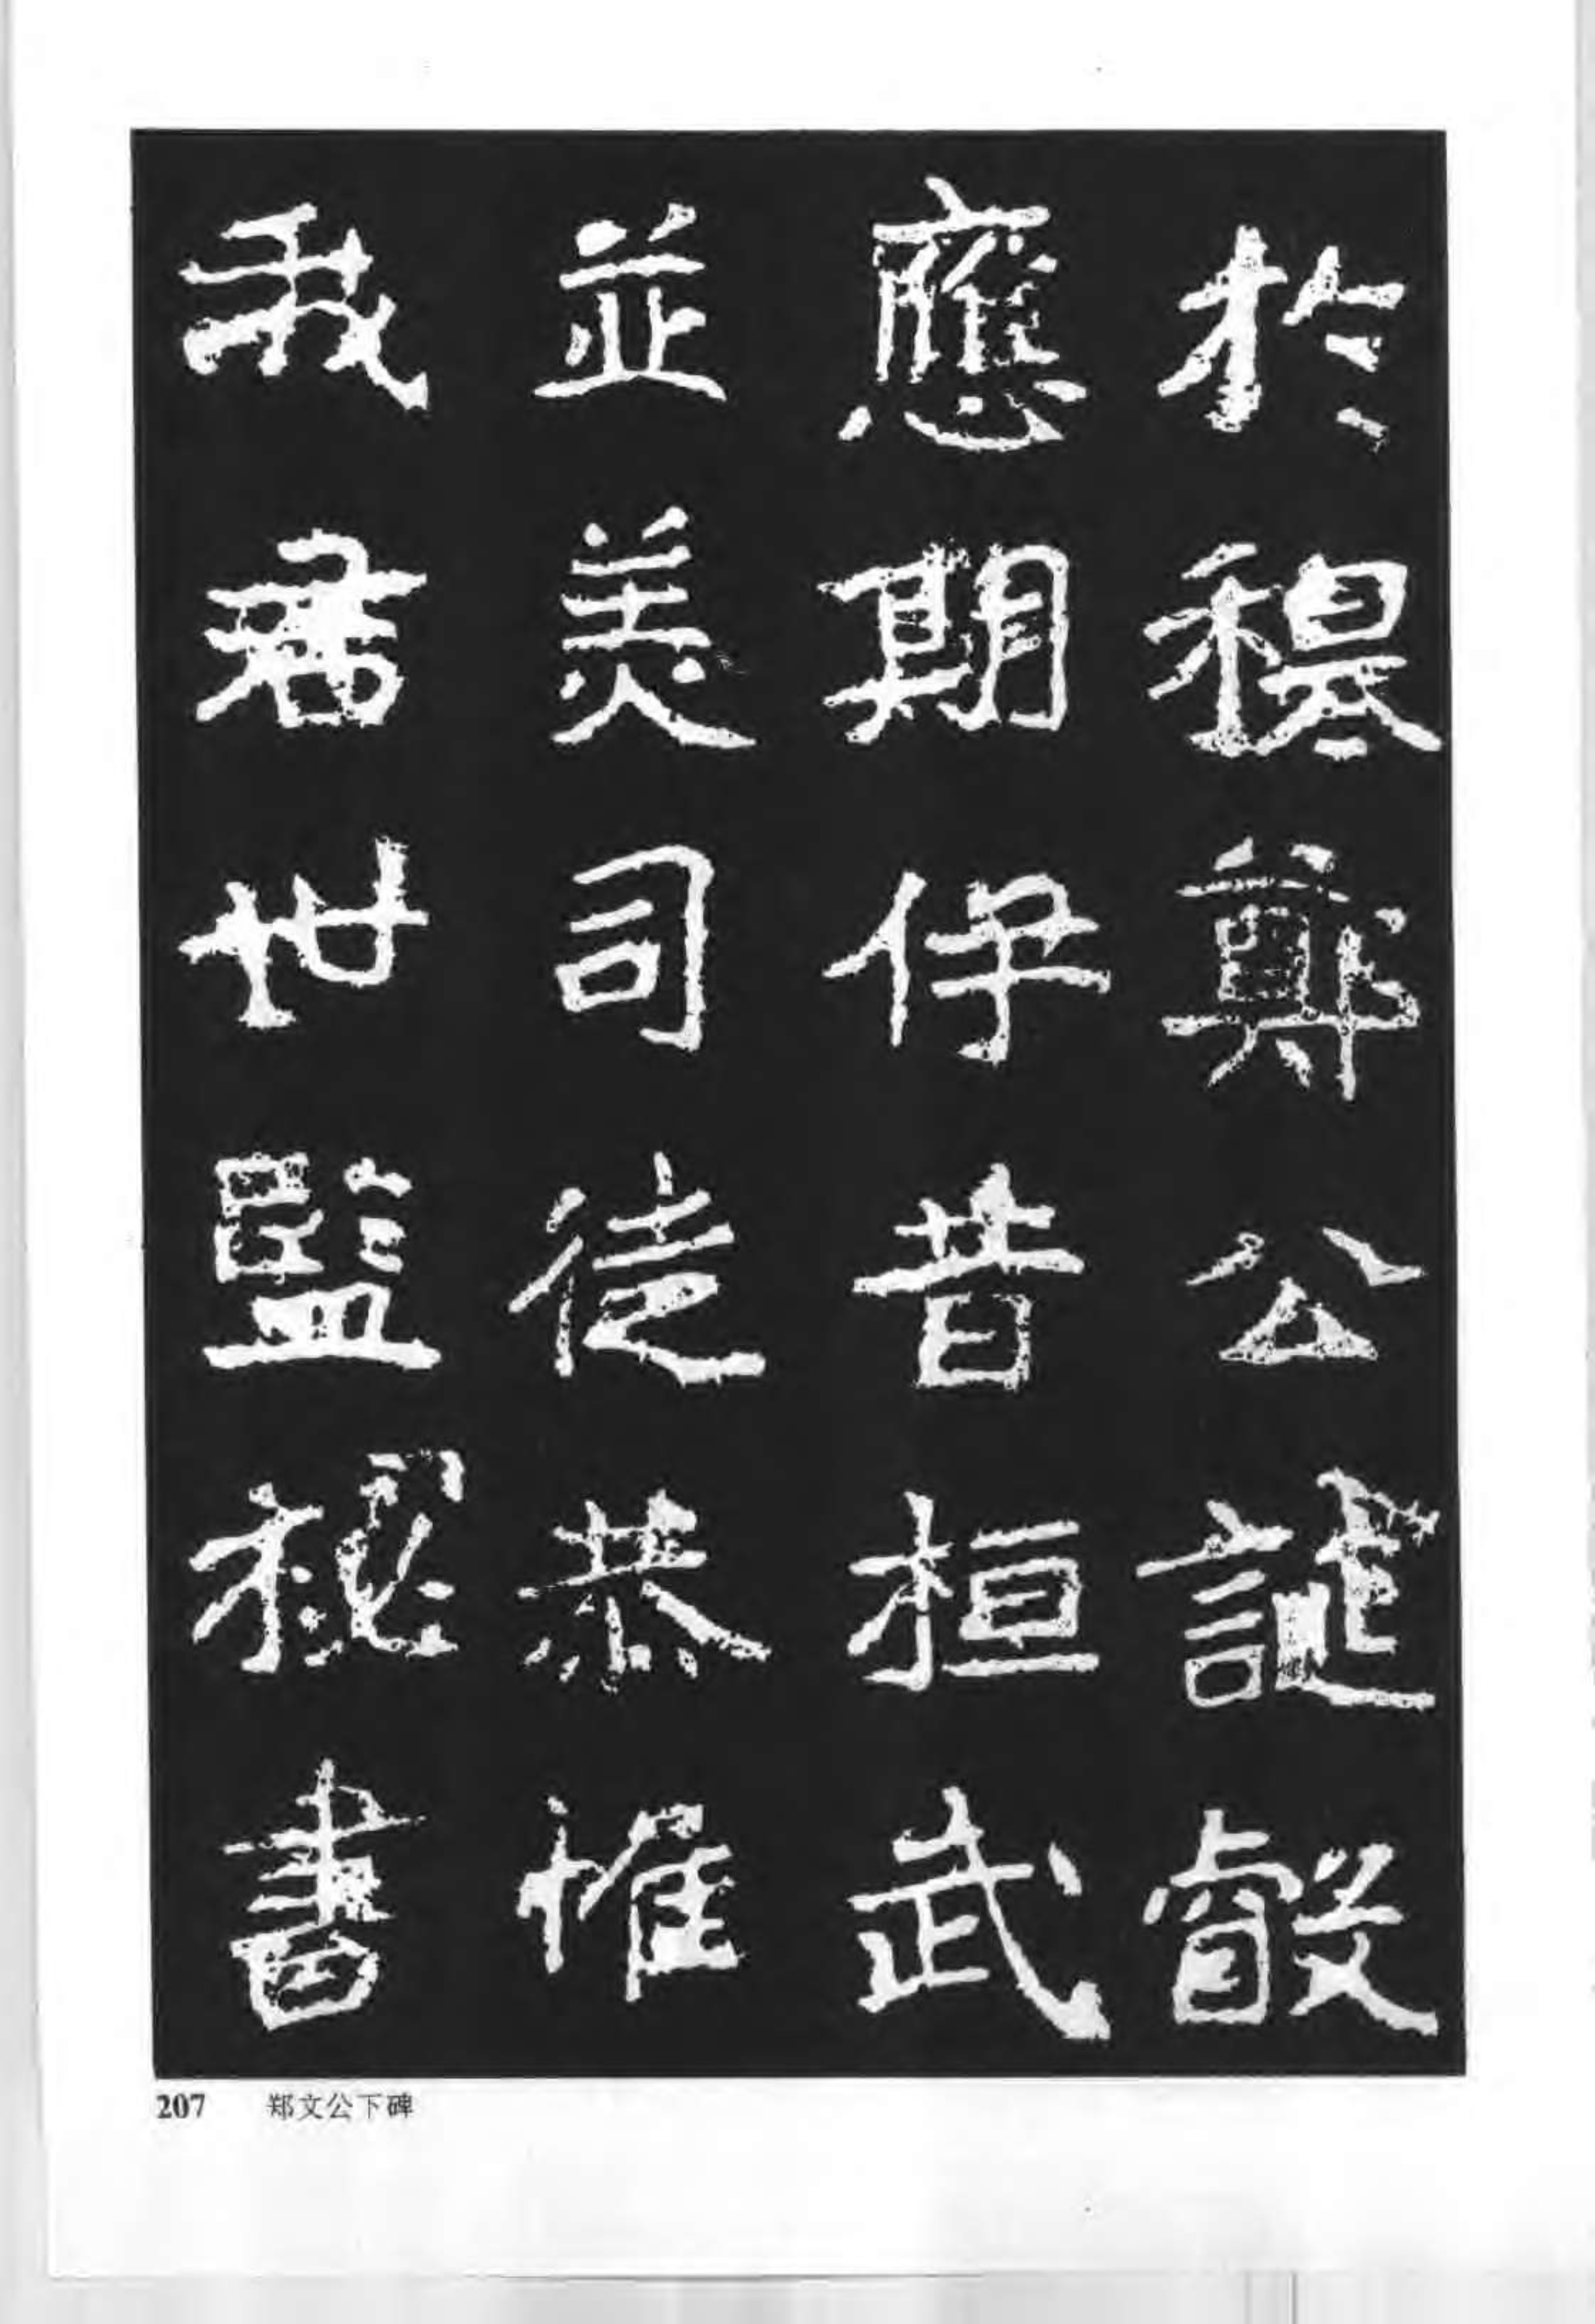 於穆鄭公誕睿
應期伊昔桓武
並美司徒恭惟
我君世監祕書
207 郑文公下碑